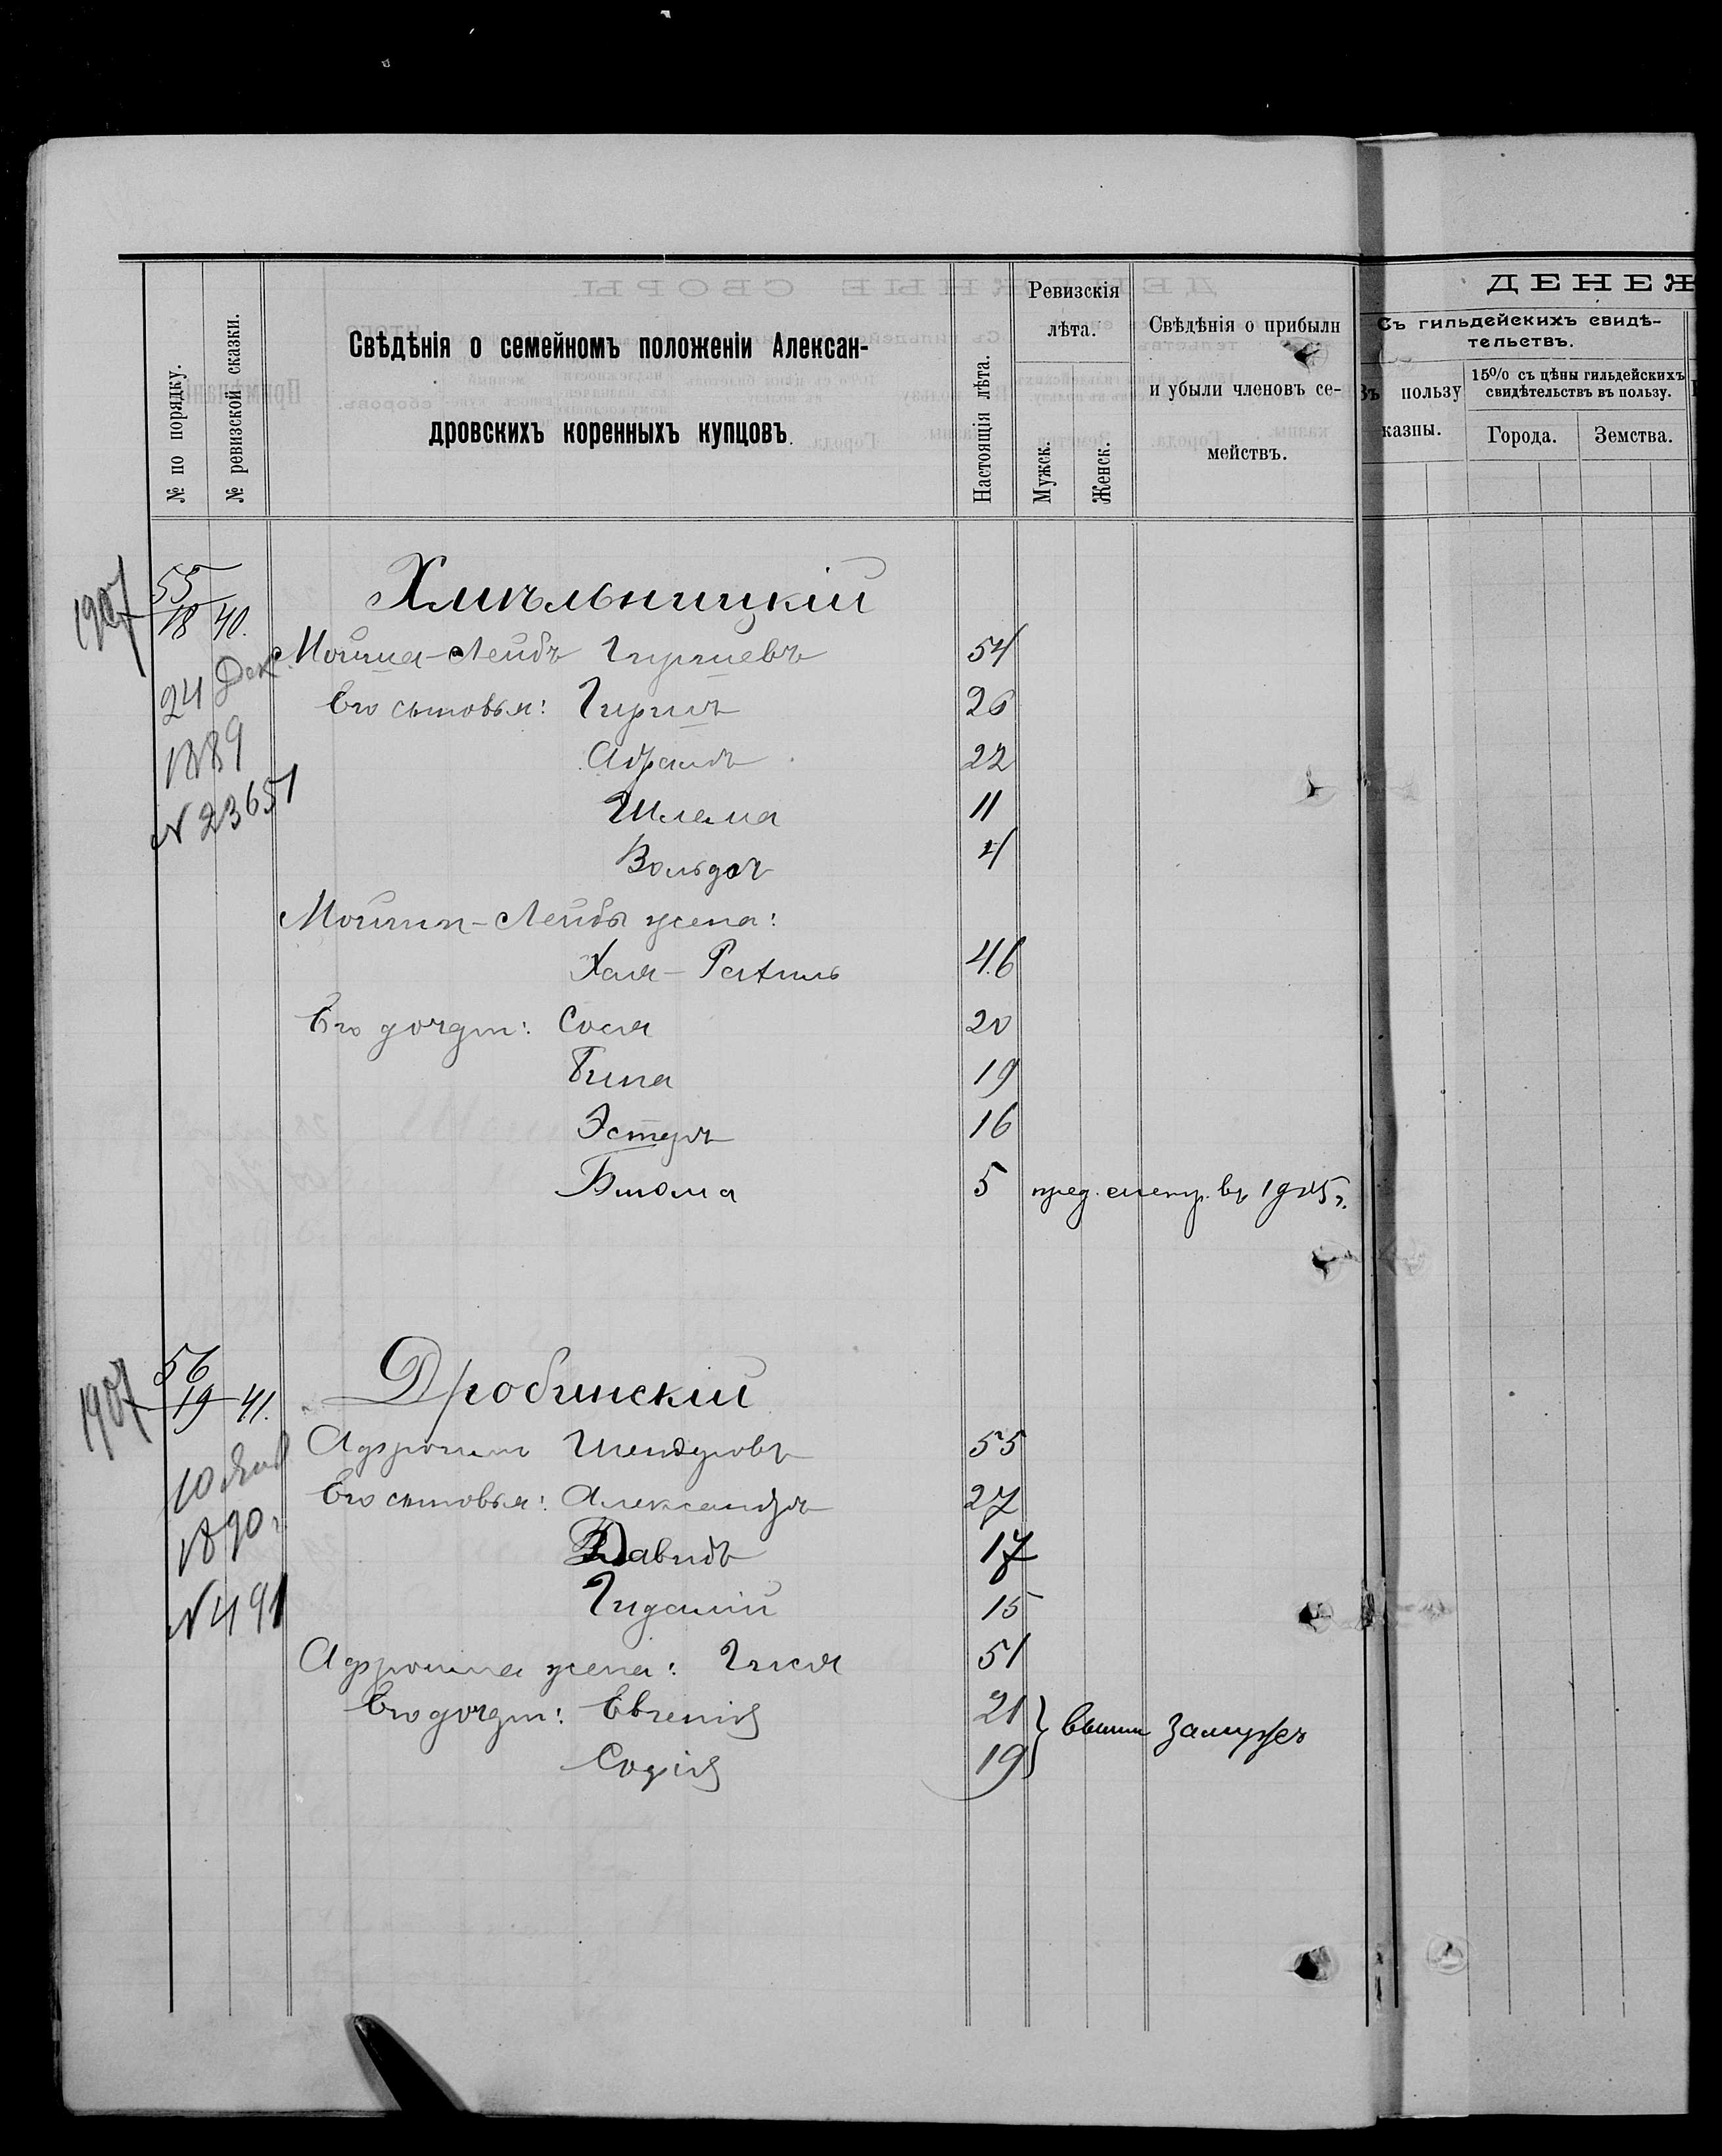 ДЕНЕЖ
№ по порядку.
№ ревизской сказки.
Свѣдѣнія о семейномъ положеніи Алексан-
дровскихъ коренныхъ купцовъ.
Настоящія лѣта.
Ревизскія
лѣта.
Мужск.
Женск.
Свѣдѣнія о прибыли
и убыли членовъ се-
мействъ.
Съ гильдейскихъ свидѣ-
тельствъ.
Въ пользу
казны.
15% съ цѣны гильдейскихъ
свидѣтельствъ въ пользу.
Города.
Земства.
1907
55
18 40.
Хмѣльницкій
Мойша-Лейбъ Гиршевъ 54
24 Дек
1889
№ 23651
Его сыновья: Гиршъ 26
Абрамъ 22
Шлема 11
Вольфъ 4
Мойши-Лейбы жена:
Хая-Рахиль 46
Его дочери: Сося 20
Бина 19
Эстеръ 16
Блюма 5 въ 1905 г.
1907
56
19 41.
Дробинскій
55
10 Янв
1890 г.
№ 491
Его сыновья: Александръ 27
Давидъ 17
Гидалій 15
жена: 51
Его дочери: Евгенія 21
Софія 19
вышли замужъ